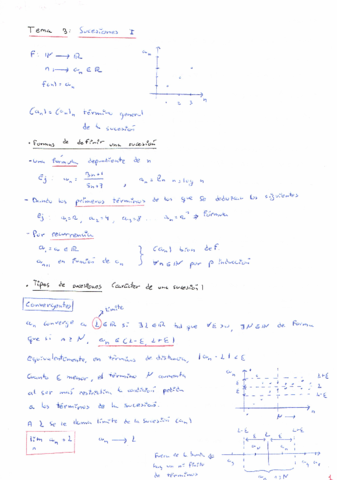 Tema 3: Sucesiones I
F: N → R
n → aₙ ∈ R
f(n) = aₙ
aₙ
1 2 3 n
(aₙ) = (aₙ)ₙ término general
de la sucesión
• Formas de definir una sucesión
- una fórmula dependiente de n
ej: aₙ =
- Dando los primeros términos de los que se deduzcan los siguientes
ej: fórmula
- Por recurrencia
a₁ = a ∈ R
aₙ₊₁ en función de aₙ
(aₙ) bien def
∀n∈N por inducción
• Tipos de sucesiones (carácter de una sucesión)
límite
Convergentes
aₙ converge a L ∈ R si ∃ L ∈ R tal que ∀ε>0, ∃N∈N de forma
que si n ≥ N, aₙ ∈ (L-ε, L+ε)
Equivalentemente, en términos de distancia, |aₙ - L| < ε
Cuanto ε menor, el término N aumenta
al ser más restrictiva la condición pedida
a los términos de la sucesión.
A L se le llama límite de la sucesión (aₙ)
lim aₙ = L
n
aₙ → L
aₙ
L+ε
L
L-ε
N
n
L-ε L L+ε
Fuera de la banda
hay un nº finito
de términos
1